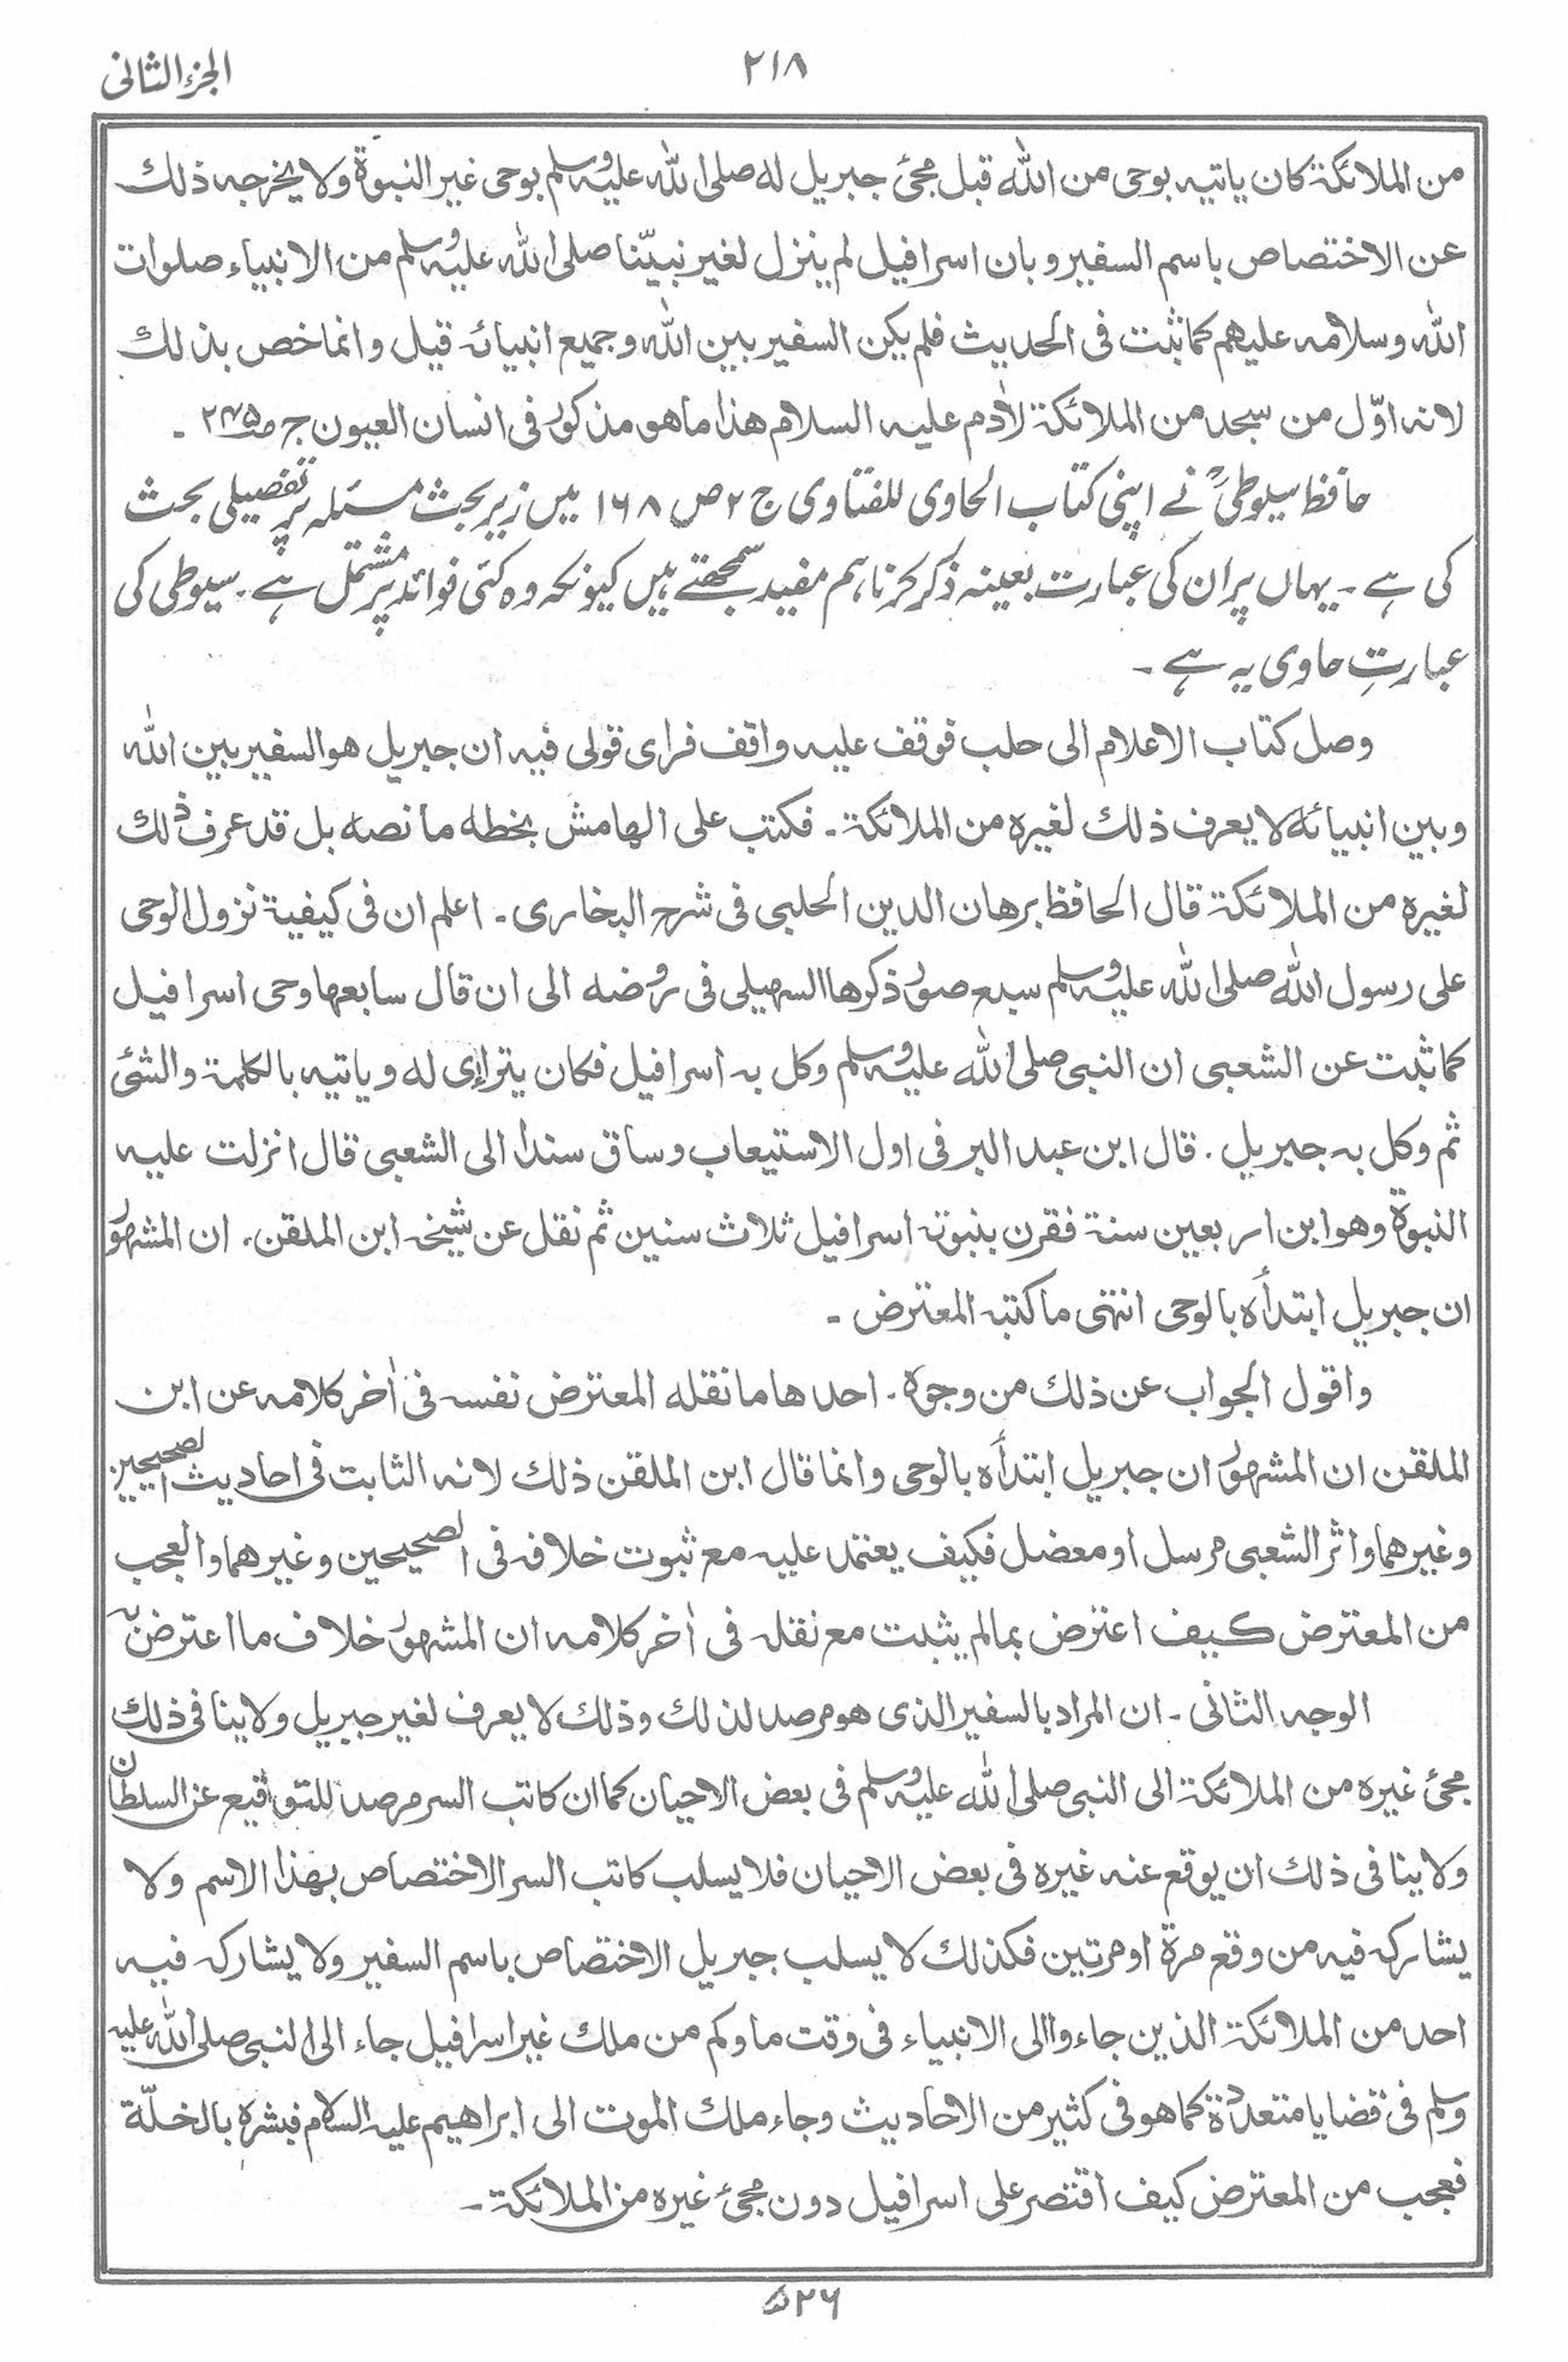 الجزء الثانی
۲۱۸
من الملائکة کان یاتیه بوحی من الله قبل مجئ جبریل له صلی الله علیه وسلم بوحی غیر النبوة ولا یخرجه ذلك
عن الاختصاص باسم السفیر و بان اسرافیل لم ینزل لغیر نبیّنا صلی الله علیه وسلم من الانبیاء صلوات
الله وسلامه علیهم کما ثبت فی الحدیث فلم یکن السفیر بین الله وجمیع انبیائه قیل وانما خص بذلك
لانه اوّل من سجد من الملائکة لاٰدم علیه السلام هذا ما هو مذکور فی انسان العیون ج ص۲۴۵ ۔
حافظ سیلوطیؒ نے اپنی کتاب الحاوی للفتاوی ج ۲ ص ۱۶۸ میں زیر بحث مسئلہ پر تفصیلی بحث
کی ہے ۔ یہاں پر ان کی عبارت بعینہ ذکر کرنا ہم مفید سمجھتے ہیں کیونکہ وہ کئی فوائد پر مشتمل ہے ۔ سیوطی کی
عبارتِ حاوی یہ ہے ۔
وصل کتاب الاعلام الی حلب فوقف علیه واقف فرای قولی فیه ان جبریل هو السفیر بین الله
وبین انبیائه لا یعرف ذلك لغیره من الملائکة ۔ فکتب علی الهامش بخطه ما نصه بل قد عرف ذلك
لغیره من الملائکة قال الحافظ برهان الدین الحلبی فی شرح البخاری ۔ اعلم ان فی کیفیة نزول الوحی
علی رسول الله صلی الله علیه وسلم سبع صور ذکرها السهیلی فی روضه الی ان قال سابعها وحی اسرافیل
کما ثبت عن الشعبی ان النبی صلی الله علیه وسلم وکل به اسرافیل فکان یترای له ویاتیه بالکلمة والشئ
ثم وکل به جبریل . قال ابن عبد البر فی اول الاستیعاب وساق سندا الی الشعبی قال انزلت علیه
النبوة وهو ابن اربعین سنة فقرن بنبوته اسرافیل ثلاث سنین ثم نقل عن شیخه ابن الملقن . ان المشهور
ان جبریل ابتدأه بالوحی انتهی ما کتبه المعترض ۔
واقول الجواب عن ذلك من وجوه . احدها ما نقله المعترض نفسه فی اٰخر کلامه عن ابن
الملقن ان المشهور ان جبریل ابتدأه بالوحی وانما قال ابن الملقن ذلك لانه الثابت فی احادیث الصحیحین
وغیرهما واثر الشعبی مرسل او معضل فکیف یعتمد علیه مع ثبوت خلافه فی الصحیحین وغیرهما والعجب
من المعترض کیف اعترض بمالم یثبت مع نقله فی اٰخر کلامه ان المشهور خلاف ما اعترض به
الوجه الثانی ۔ ان المراد بالسفیر الذی هو مرصد لذلك وذلك لا یعرف لغیر جبریل ولا ینافی ذلك
مجئ غیره من الملائکة الی النبی صلی الله علیه وسلم فی بعض الاحیان کما ان کاتب السر مرصد للتواقیع عن السلطان
ولا ینافی ذلك ان یوقع عنه غیره فی بعض الاحیان فلا یسلب کاتب السر الاختصاص بهذا الاسم ولا
یشارکه فیه من وقع مرة او مرتین فکذلك لا یسلب جبریل الاختصاص باسم السفیر ولا یشارکه فیه
احد من الملائکة الذین جاءوا الی الانبیاء فی وقت ما وکم من ملك غیر اسرافیل جاء الی النبی صلی الله علیه
وسلم فی قضایا متعددة کما هو فی کثیر من الاحادیث وجاء ملك الموت الی ابراهیم علیه السلام فبشره بالخلّة
فعجب من المعترض کیف اقتصر علی اسرافیل دون مجئ غیره من الملائکة ۔
۵۲۶